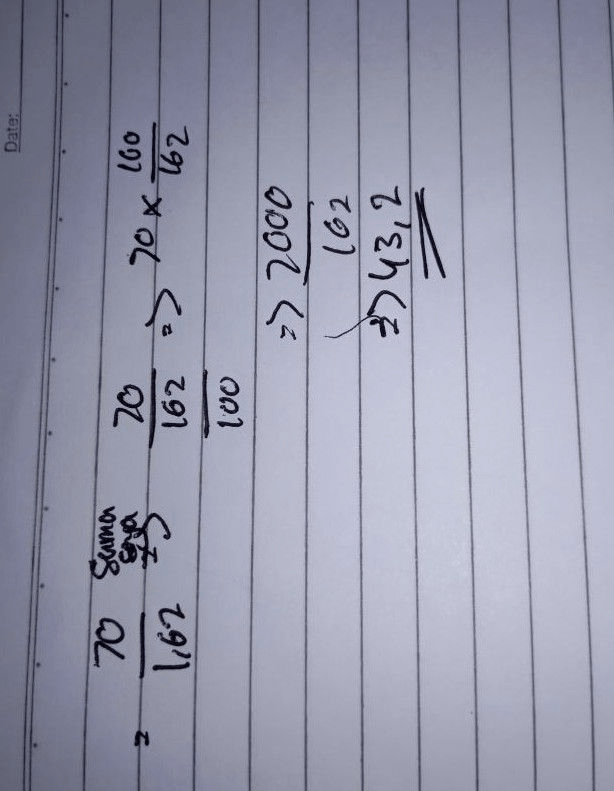 Date:
= 70/1,62 Sama aja => 70/162/100 => 70 x 100/162
=> 7000/162
=> 43,2